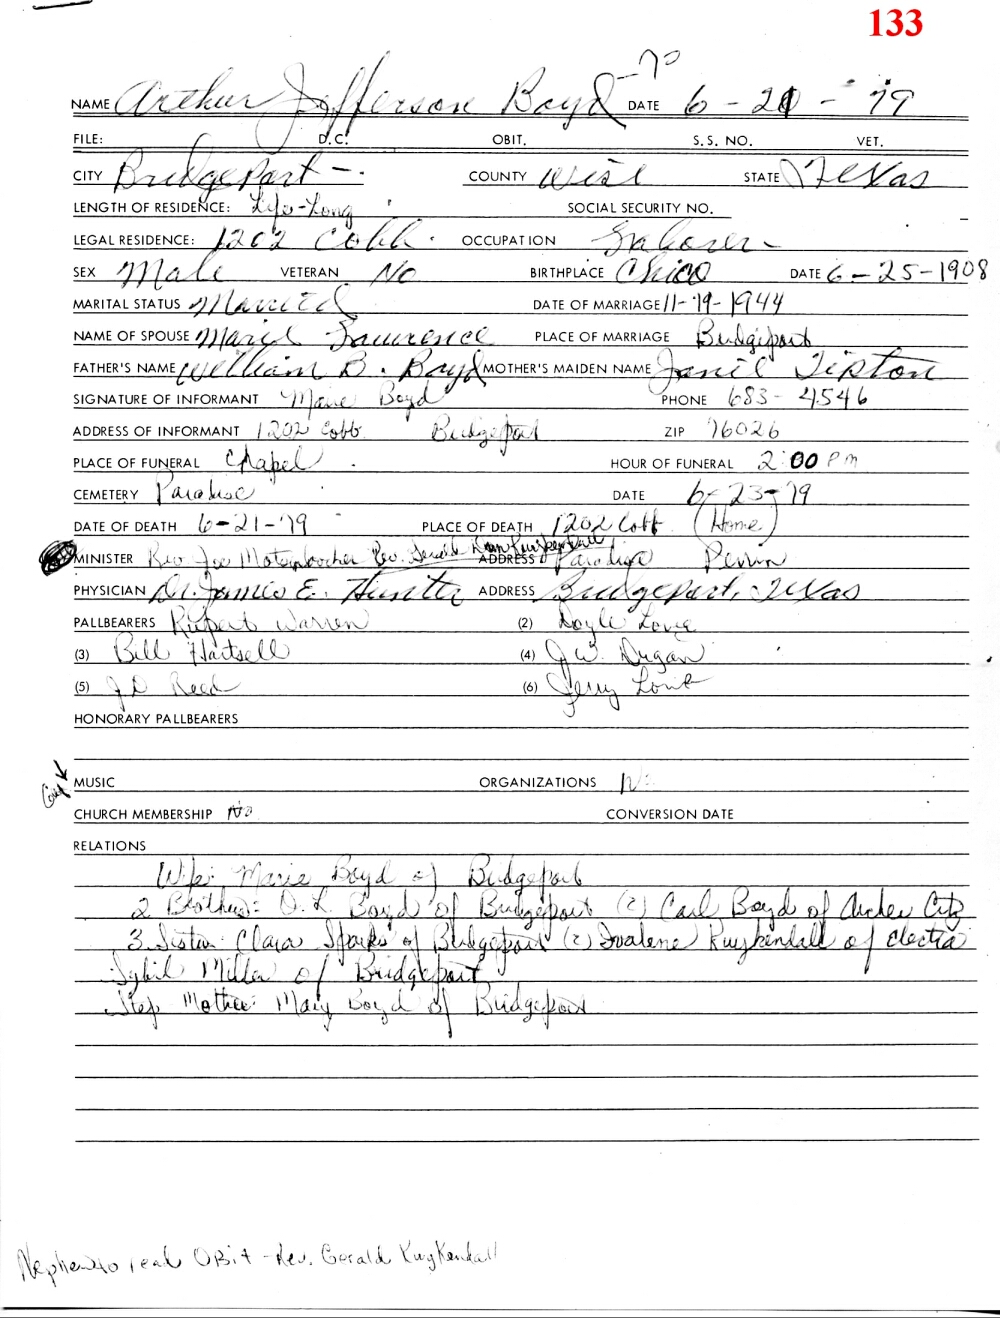 133
-70
NAME Arthur Jefferson Boyd DATE 6-21-79
FILE: D.C. OBIT. S.S. NO. VET.
CITY Bridgeport - COUNTY Wise STATE Texas
LENGTH OF RESIDENCE: Life-Long SOCIAL SECURITY NO.
LEGAL RESIDENCE: 1202 Cobb. OCCUPATION Laborer-
SEX Male VETERAN No BIRTHPLACE Chico DATE 6-25-1908
MARITAL STATUS Married DATE OF MARRIAGE 11-19-1944
NAME OF SPOUSE Marie Lawrence PLACE OF MARRIAGE Bridgeport
FATHER'S NAME William B. Boyd MOTHER'S MAIDEN NAME Janie Tipton
SIGNATURE OF INFORMANT Marie Boyd PHONE 683-4546
ADDRESS OF INFORMANT 1202 Cobb Bridgeport ZIP 76026
PLACE OF FUNERAL Chapel HOUR OF FUNERAL 2:00 PM
CEMETERY Paradise DATE 6-23-79
DATE OF DEATH 6-21-79 PLACE OF DEATH 1202 Cobb (Home)
MINISTER Rev Joe Rev. Gerald Kuykendall ADDRESS Paradise Perrin
PHYSICIAN Dr. James E. Hunter ADDRESS Bridgeport, Texas
PALLBEARERS Rupert Warren (2) Doyle Lowe
(3) Bill Hartsell (4) J.W. Dugan
(5) J D Reed (6) Jerry
HONORARY PALLBEARERS
MUSIC ORGANIZATIONS No
CHURCH MEMBERSHIP No CONVERSION DATE
RELATIONS
Wife: Marie Boyd of Bridgeport
2 Brothers: O. L. Boyd of Bridgeport (2) Carl Boyd of Archer City
3 Sister Clara Sparks of Bridgeport (2) Ivalene Kuykendall of Electra
Sybil Miller of Bridgeport
Step Mother: Mary Boyd of Bridgeport
Nephew to read OBit - Rev. Gerald Kuykendall